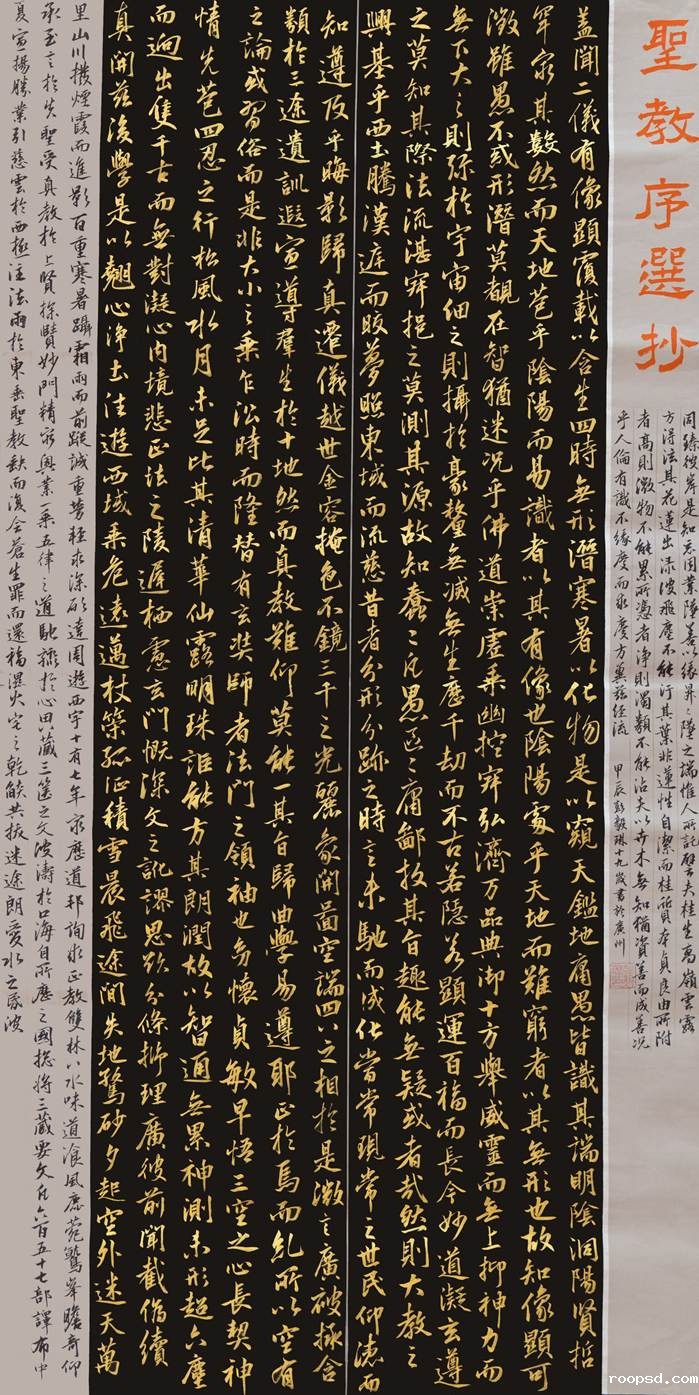 聖教序選抄
蓋聞二儀有像顯覆載以含生四時無形潛寒暑以化物是以窺天鑑地庸愚皆識其端明陰洞陽賢哲
罕窮其數然而天地苞乎陰陽而易識者以其有像也陰陽處乎天地而難窮者以其無形也故知像顯可
徵雖愚不惑形潛莫覩在智猶迷況乎佛道崇虛乘幽控寂弘濟万品典御十方舉威靈而無上抑神力而
無下大之則彌於宇宙細之則攝於豪釐無滅無生歷千劫而不古若隱若顯運百福而長今妙道凝玄遵
之莫知其際法流湛寂挹之莫測其源故知蠢蠢凡愚區區庸鄙投其旨趣能無疑或者哉然則大教之
興基乎西土騰漢庭而皎夢照東域而流慈昔者分形分跡之時言未馳而成化當常現常之世民仰德而
知遵及乎晦影歸真遷儀越世金容掩色不鏡三千之光麗象開圖空端四八之相於是微言廣被拯含
類於三途遺訓遐宣導群生於十地然而真教難仰莫能一其旨歸曲學易遵耶正於焉而乱所以空有
之論或習俗而是非大小之乘乍沿時而隆替有玄奘師者法門之領袖也幼懷貞敏早悟三空之心長契神
情先苞四忍之行松風水月未足比其清華仙露明珠詎能方其朗潤故以智通無累神測未形超六塵
而迥出隻千古而無對凝心內境悲正法之陵遲栖慮玄門慨深文之訛謬思欲分條析理廣彼前聞截偽續
真開茲後學是以翹心淨土往遊西域乘危遠邁杖策孤征積雪晨飛途間失地驚砂夕起空外迷天萬
里山川撥煙霞而進影百重寒暑躡霜雨而前蹤誠重勞輕求深願達周遊西宇十有七年窮歷道邦詢求正教雙林八水味道飡風鹿菀鷲峯瞻奇仰
承至言於先聖受真教於上賢探賾妙門精窮奧業一乘五律之道馳驟於心田八藏三篋之文波濤於口海自所歷之國總將三藏要文凡六百五十七部譯布中
夏宣揚勝業引慈雲於西極注法雨於東垂聖教缺而復全蒼生罪而還福濕火宅之乾燄共拔迷途朗愛水之昏波
同臻彼岸是知惡因業墜善以緣昇昇墜之端惟人所託譬夫桂生高嶺雲露
方得泫其花蓮出淥波飛塵不能污其葉非蓮性自潔而桂質本貞良由所附
者高則微物不能累所憑者淨則濁類不能沾夫以卉木無知猶資善而成善況
乎人倫有識不緣慶而求慶方冀茲經流 甲辰彭毅琳十九歲書於廣州
roopsd.com